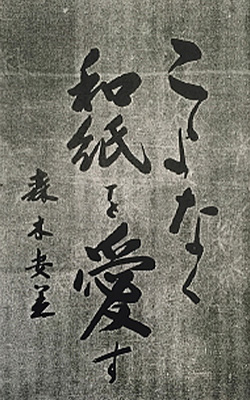 こよなく
和紙を愛す
森木